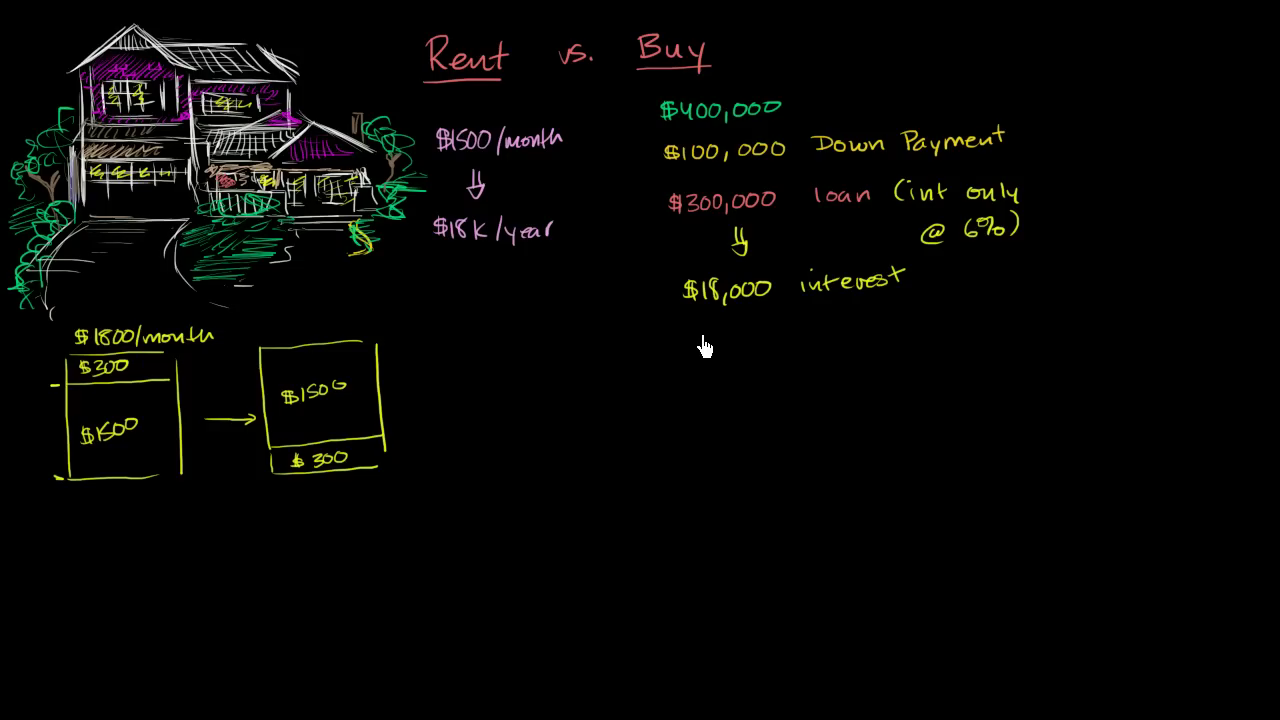 Rent vs. Buy
$1500/month
$18K/year
$400,000
$100,000 Down Payment
$300,000 loan (int only
@ 6%)
$18,000 interest
$1800/month
$300
$1500
$1500
$300